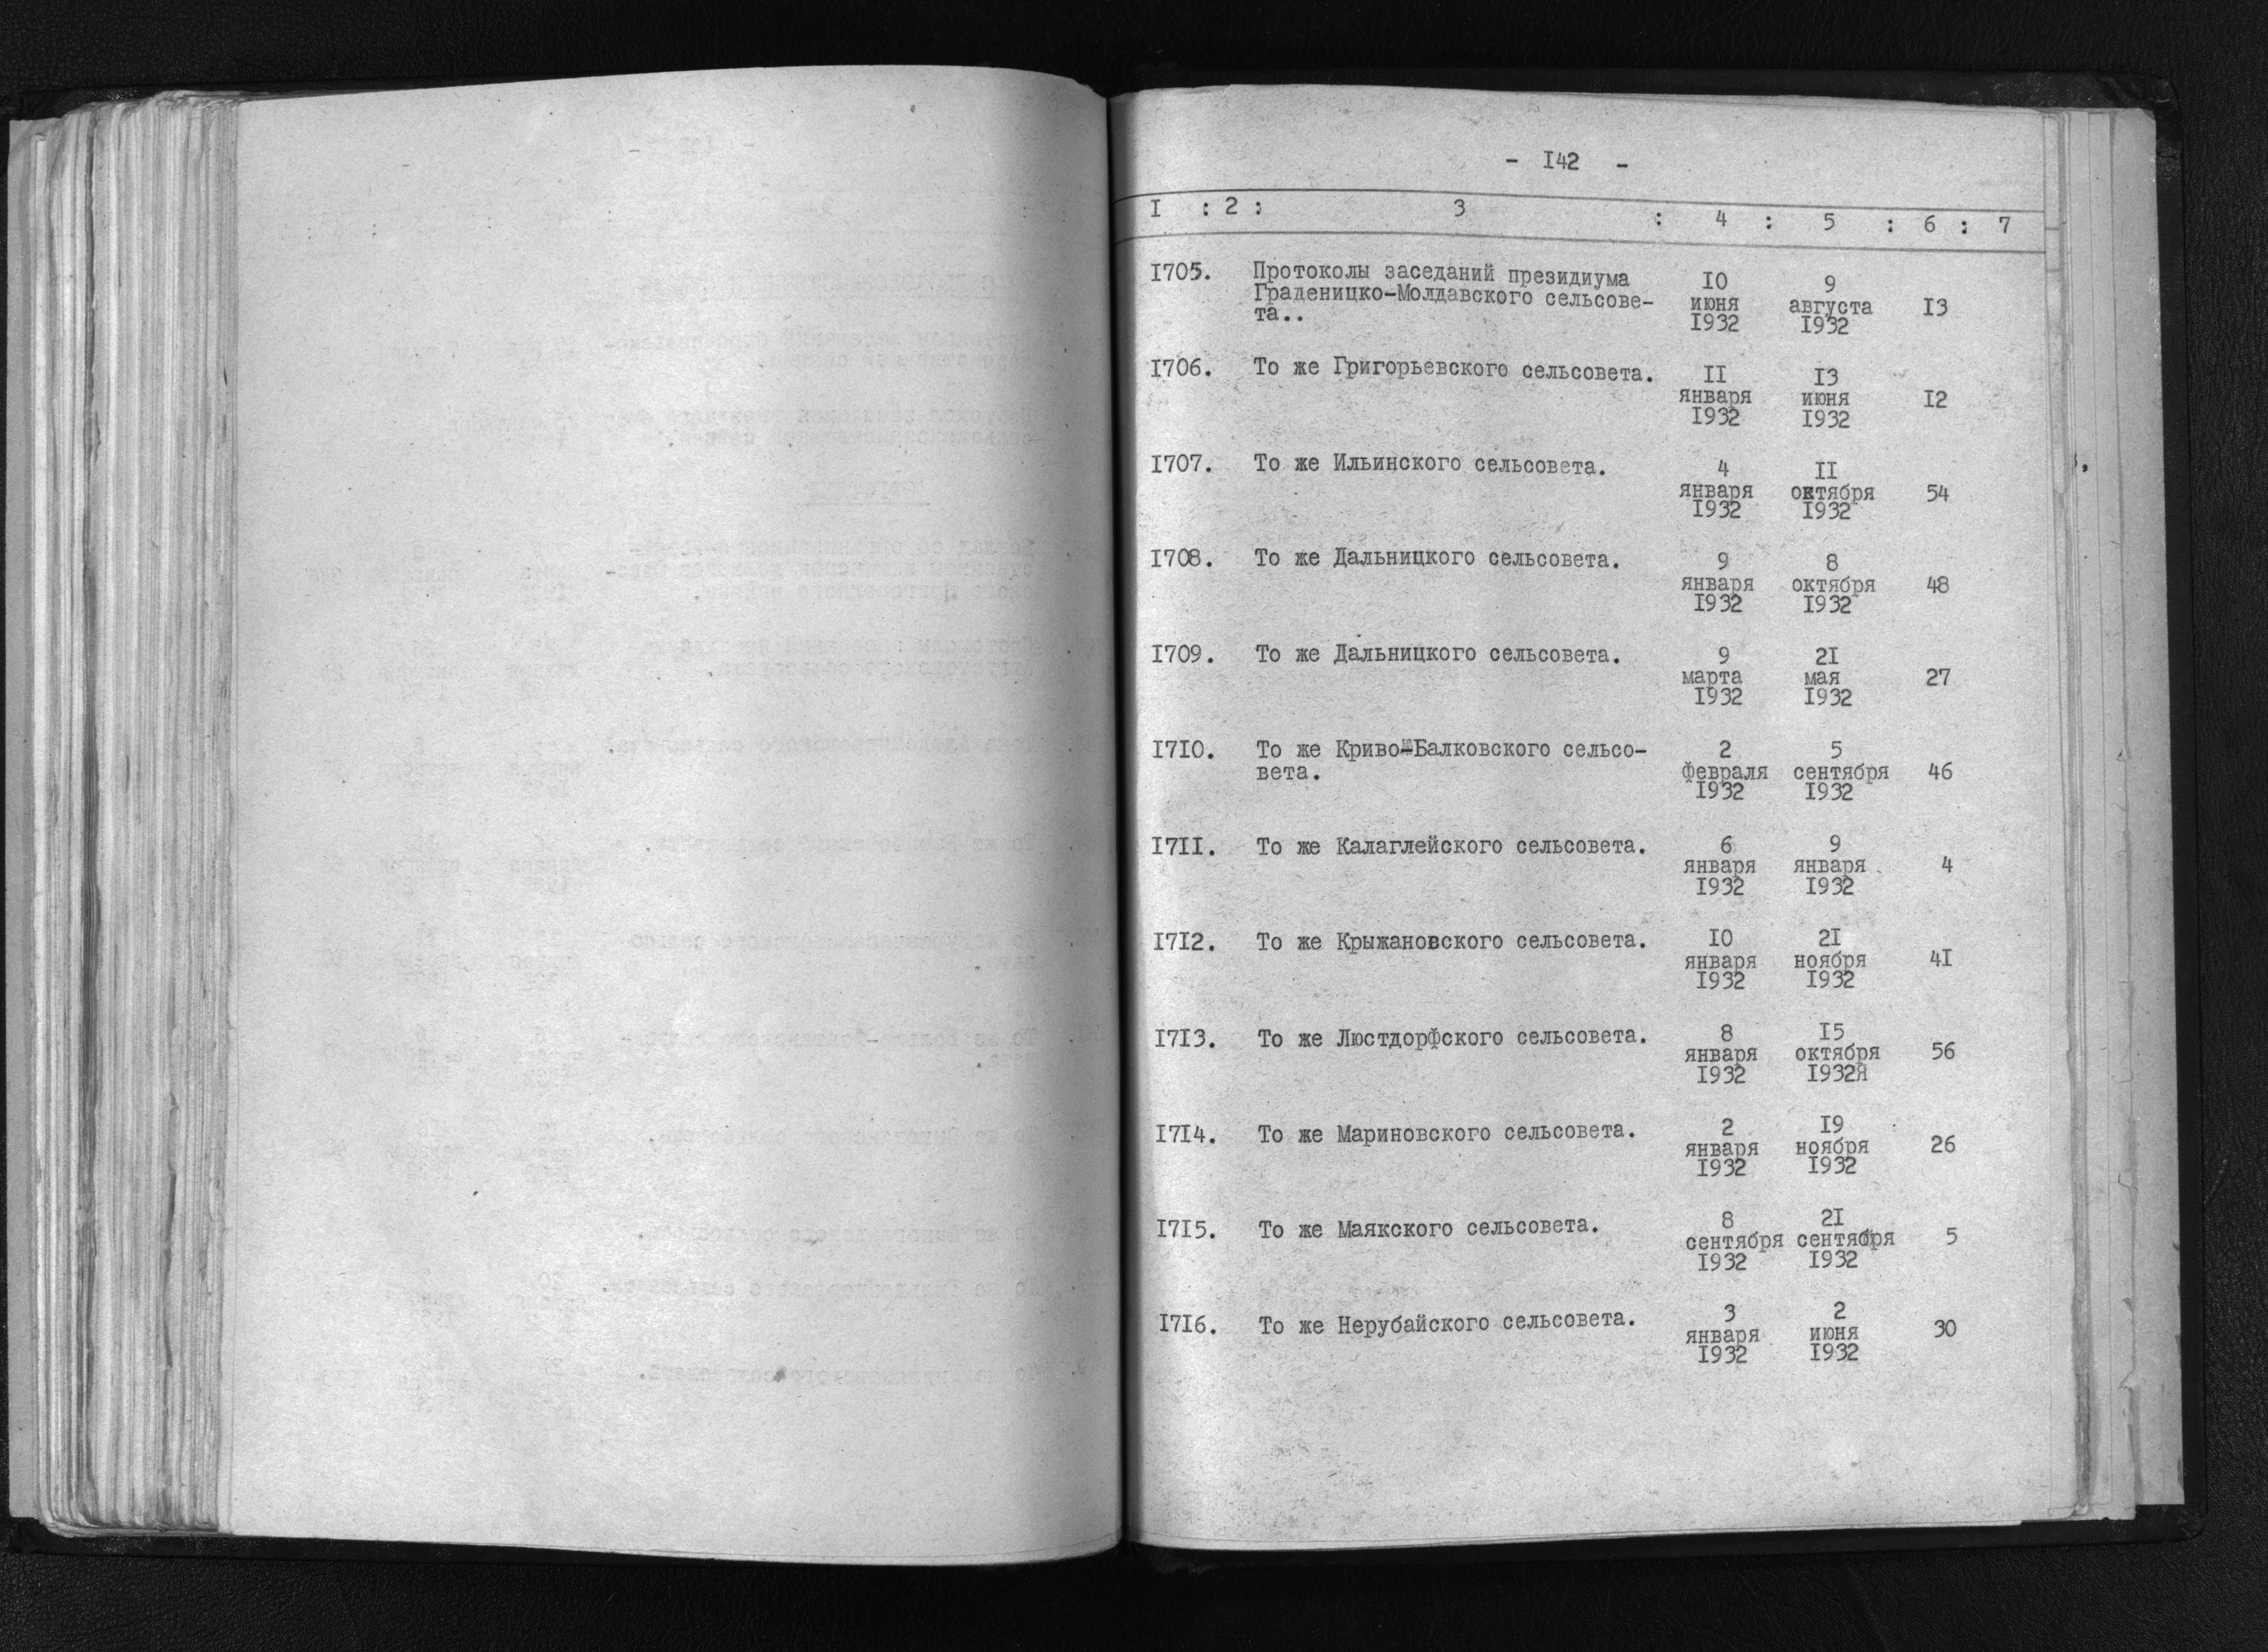 - I42 -
I : 2 : 3 : 4 : 5 : 6 : 7
I705. Протоколы заседаний президиума IO 9
Граденицко-Молдавского сельсове- июня августа I3
та.. I932 I932
I706. То же Григорьевского сельсовета. II I3
января июня I2
I932 I932
I707. То же Ильинского сельсовета. 4 II
января октября 54
I932 I932
I708. То же Дальницкого сельсовета. 9 8
января октября 48
I932 I932
I709. То же Дальницкого сельсовета. 9 2I
марта мая 27
I932 I932
I7IO. То же Криво-Балковского сельсо- 2 5
вета. февраля сентября 46
I932 I932
I7II. То же Калаглейского сельсовета. 6 9
января января 4
I932 I932
I7I2. То же Крыжановского сельсовета. IO 2I
января ноября 4I
I932 I932
I7I3. То же Люстдорфского сельсовета. 8 I5
января октября 56
I932 I932Я
I7I4. То же Мариновского сельсовета. 2 I9
января ноября 26
I932 I932
I7I5. То же Маякского сельсовета. 8 2I
сентября сентября 5
I932 I932
I7I6. То же Нерубайского сельсовета. 3 2
января июня 30
I932 I932